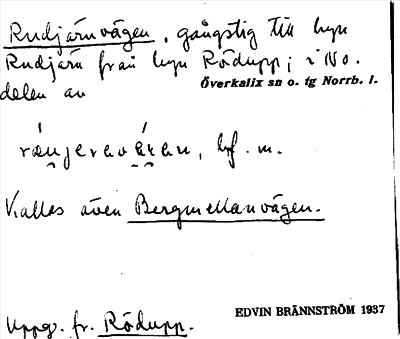 Rudjärnvägen, gångstig till byn
Rudjärn från byn Rödupp; i NO.
Överkalix sn o. tg Norrb. l.
delen av
best. f. m.
Kallas även Bergmellanvägen.
EDVIN BRÄNNSTRÖM 1937
Uppg. fr. Rödupp.